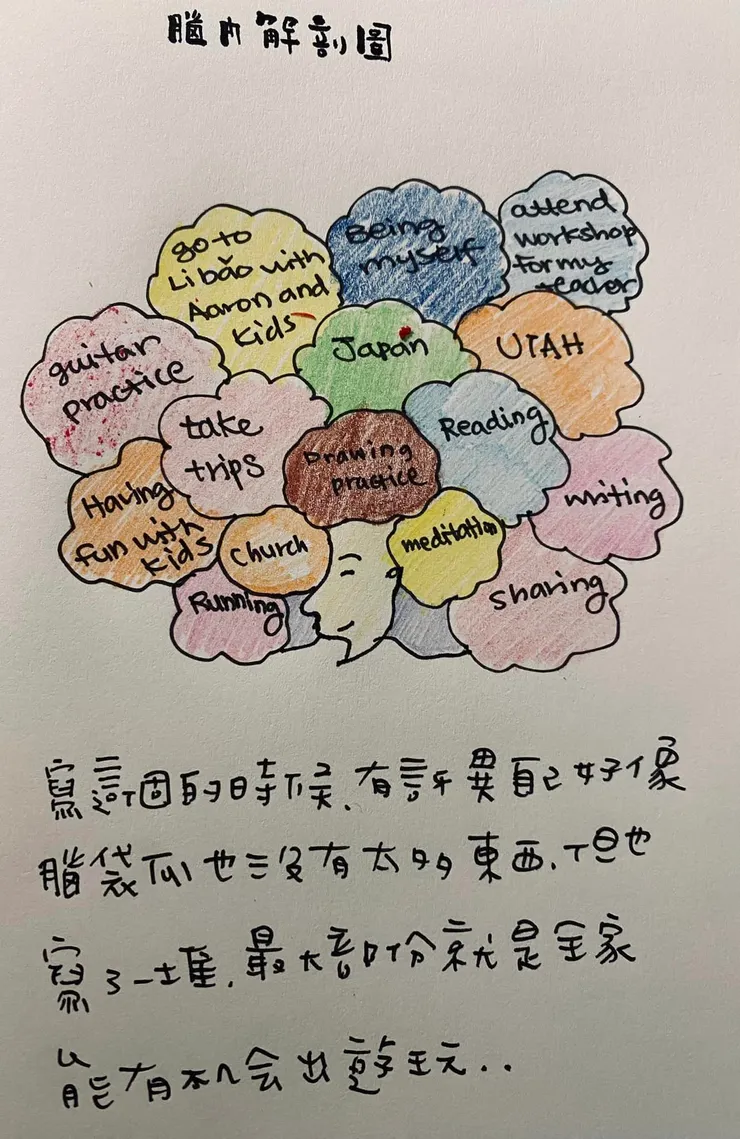 腦內解剖圖
go to
Libǎo with
Aaron and
kids
Being
myself
attend
workshop
for my
teacher
guitar
practice
Japan
UTAH
take
trips
Drawing
practice
Reading
writing
Having
fun with
kids
church
meditation
Running
sharing
寫這個的時候,有訝異自己好像
腦袋瓜也沒有太多東西,但也
寫了一堆,最大部份就是全家
能有机会出遊玩..